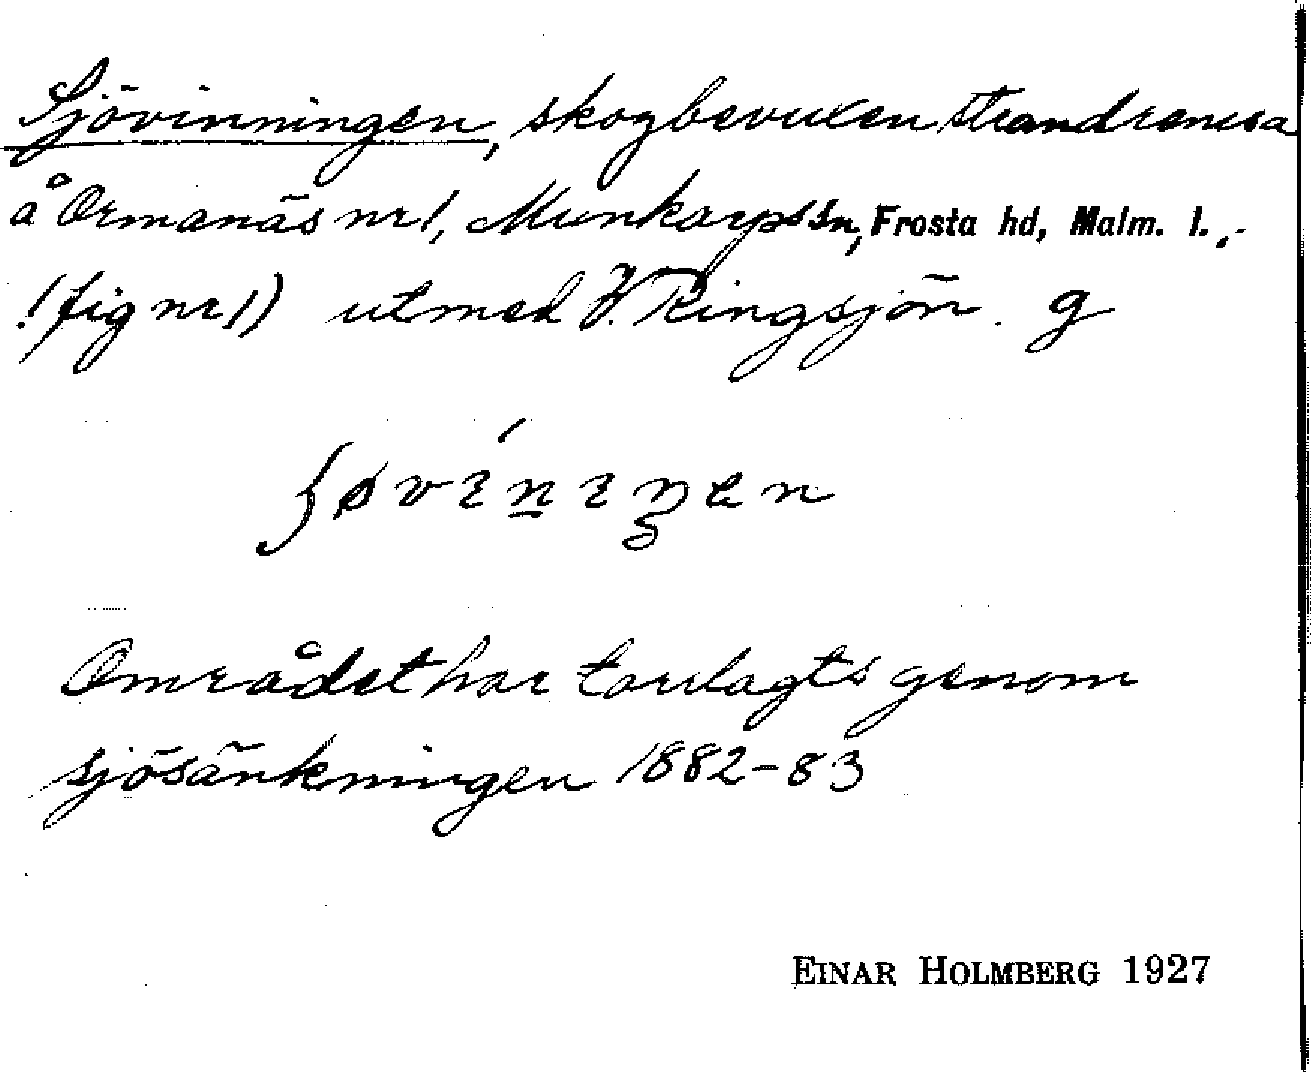 Sjövinningen, skogbevuxen strandremsa
å Ormanäs nr 1, Munkarps sn, Frosta hd, Malm. l.,
(fig nr 1) utmed V. Ringsjön. g
Området har torrlagts genom
sjösänkningen 1882-83
EINAR HOLMBERG 1927